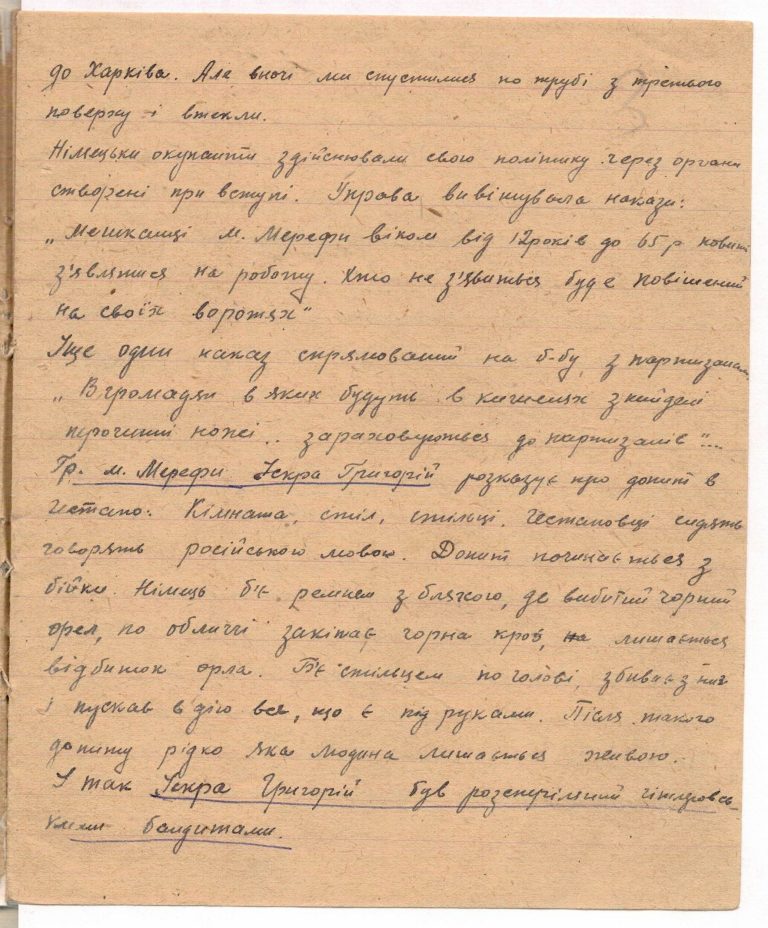 до Харкова. Але вночі ми спустилися по трубі з третього
поверху і втекли.
Німецьки окупанти здійснювали свою політику через органи
створені при вступі. Управа вивішувала накази:
„Мешканці м. Мерефи віком від 12 років до 65 р повинні
з'являтися на роботу. Хто не з'явиться буде повішений
на своїх воротях"
Іще один наказ спрямований на б-бу з партизанами
„В громадян в яких будуть в кишенях знайдені
перочинні ножі.. зараховуються до партизанів"...
Гр. м. Мерефи Іскра Григорій розказує про допит в
гестапо: Кімната, стіл, стільці. Гестаповці сидять
говорять російською мовою. Допит починається з
бійки. Німець б'є ременем з бляхою, де вибитий чорний
орел, по обличчі закіпає чорна кров, на лишається
відбиток орла. Б'є стільцем по голові, збиває з ніг
і пускав в дію все, що є під руками. Після такого
допиту рідко яка людина лишається живою.
І так Іскра Григорій був розстріляний гітлеровсь-
кими бандитами.